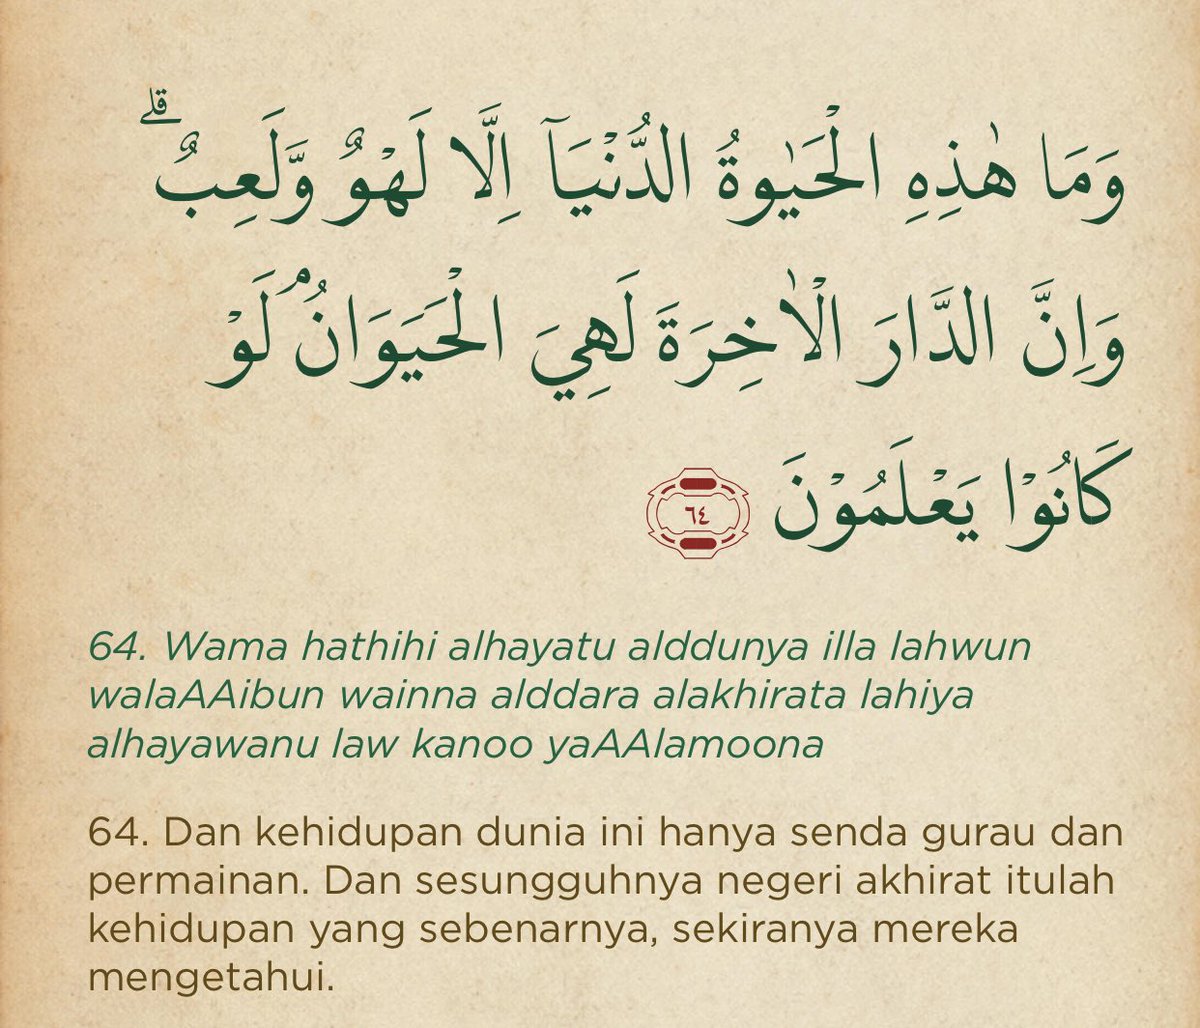 وَمَا هٰذِهِ الْحَيٰوةُ الدُّنْيَآ اِلَّا لَهْوٌ وَّلَعِبٌۗ
وَاِنَّ الدَّارَ الْاٰخِرَةَ لَهِيَ الْحَيَوَانُۘ لَوْ
كَانُوْا يَعْلَمُوْنَ ٦٤
64. Wama hathihi alhayatu alddunya illa lahwun
walaAAibun wainna alddara alakhirata lahiya
alhayawanu law kanoo yaAAlamoona
64. Dan kehidupan dunia ini hanya senda gurau dan
permainan. Dan sesungguhnya negeri akhirat itulah
kehidupan yang sebenarnya, sekiranya mereka
mengetahui.